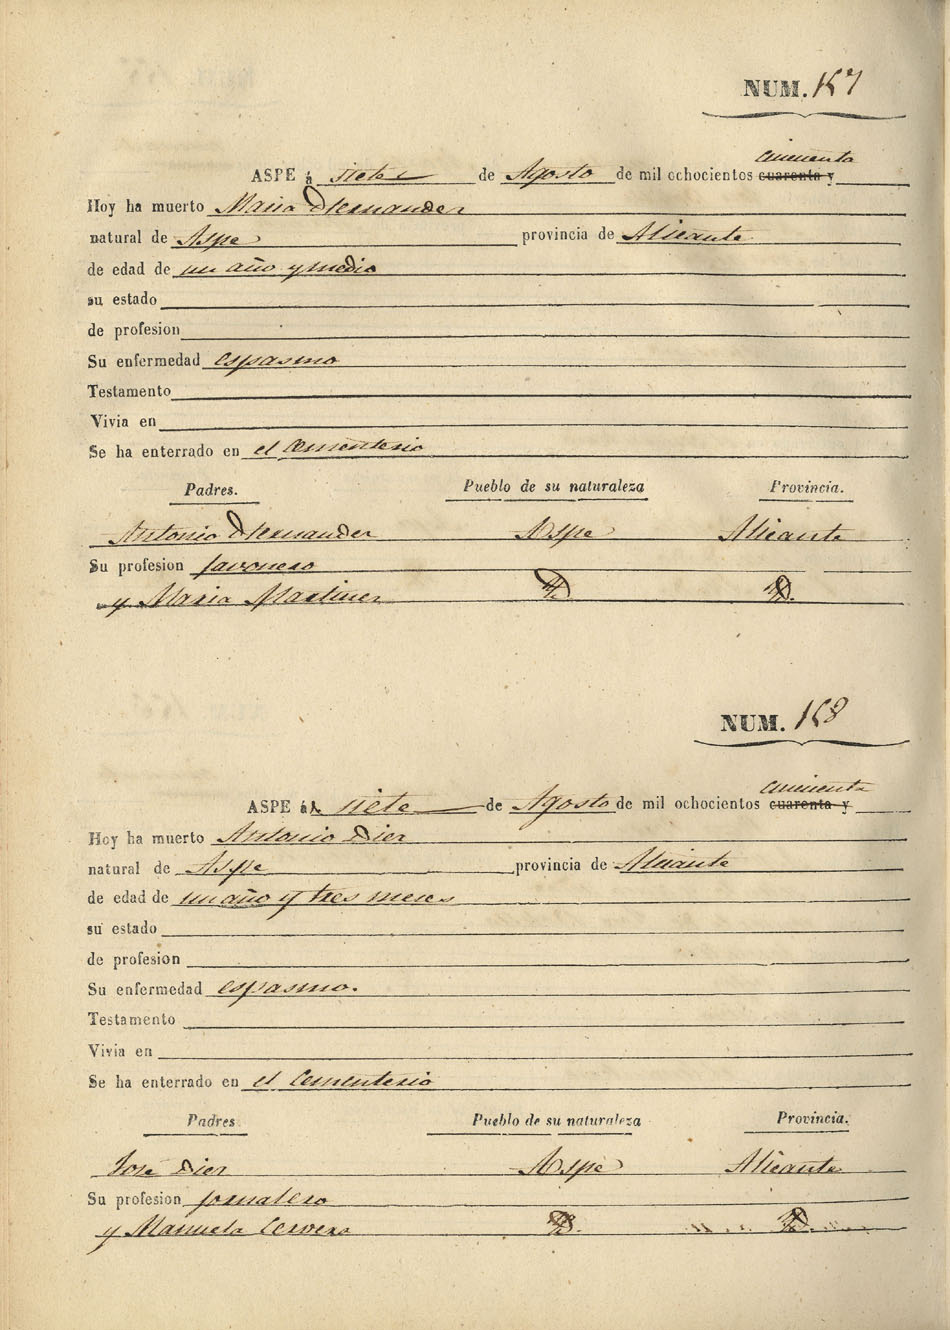 NUM. 157
cincuenta
ASPE á siete de Agosto de mil ochocientos cuarenta y
Hoy ha muerto Maria Hernander
natural de Aspe provincia de Alicante
de edad de un año y medio
su estado
de profesion
Su enfermedad espasmo
Testamento
Vivia en
Se ha enterrado en el Cementerio
Padres. Pueblo de su naturaleza Provincia.
Antonio Hernander Aspe Alicante
Su profesion
y Maria Martiner
NUM. 158
cincuenta
ASPE á siete de Agosto de mil ochocientos cuarenta y
Hoy ha muerto Antonio Dier
natural de Aspe provincia de Alicante
de edad de un año y tres meses
su estado
de profesion
Su enfermedad espasmo.
Testamento
Vivia en
Se ha enterrado en el Cementerio
Padres. Pueblo de su naturaleza Provincia.
José Dier Aspe Alicante
Su profesion jornalero
y Manuela Cervera